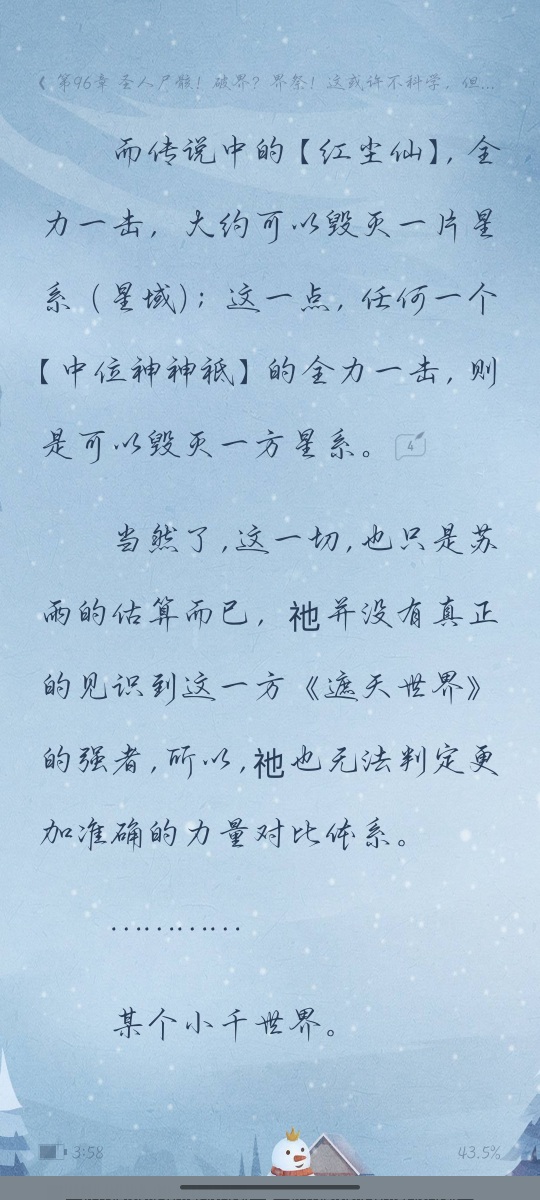 《 第96章 圣人尸骸！破界？界祭！这或许不科学，但...
而传说中的【红尘仙】，全
力一击，大约可以毁灭一片星
系（星域）；这一点，任何一个
【中位神神祗】的全力一击，则
是可以毁灭一方星系。 4
当然了，这一切，也只是苏
雨的估算而已，祂并没有真正
的见识到这一方《遮天世界》
的强者，所以，祂也无法判定更
加准确的力量对比体系。
…………
某个小千世界。
3:58
43.5%